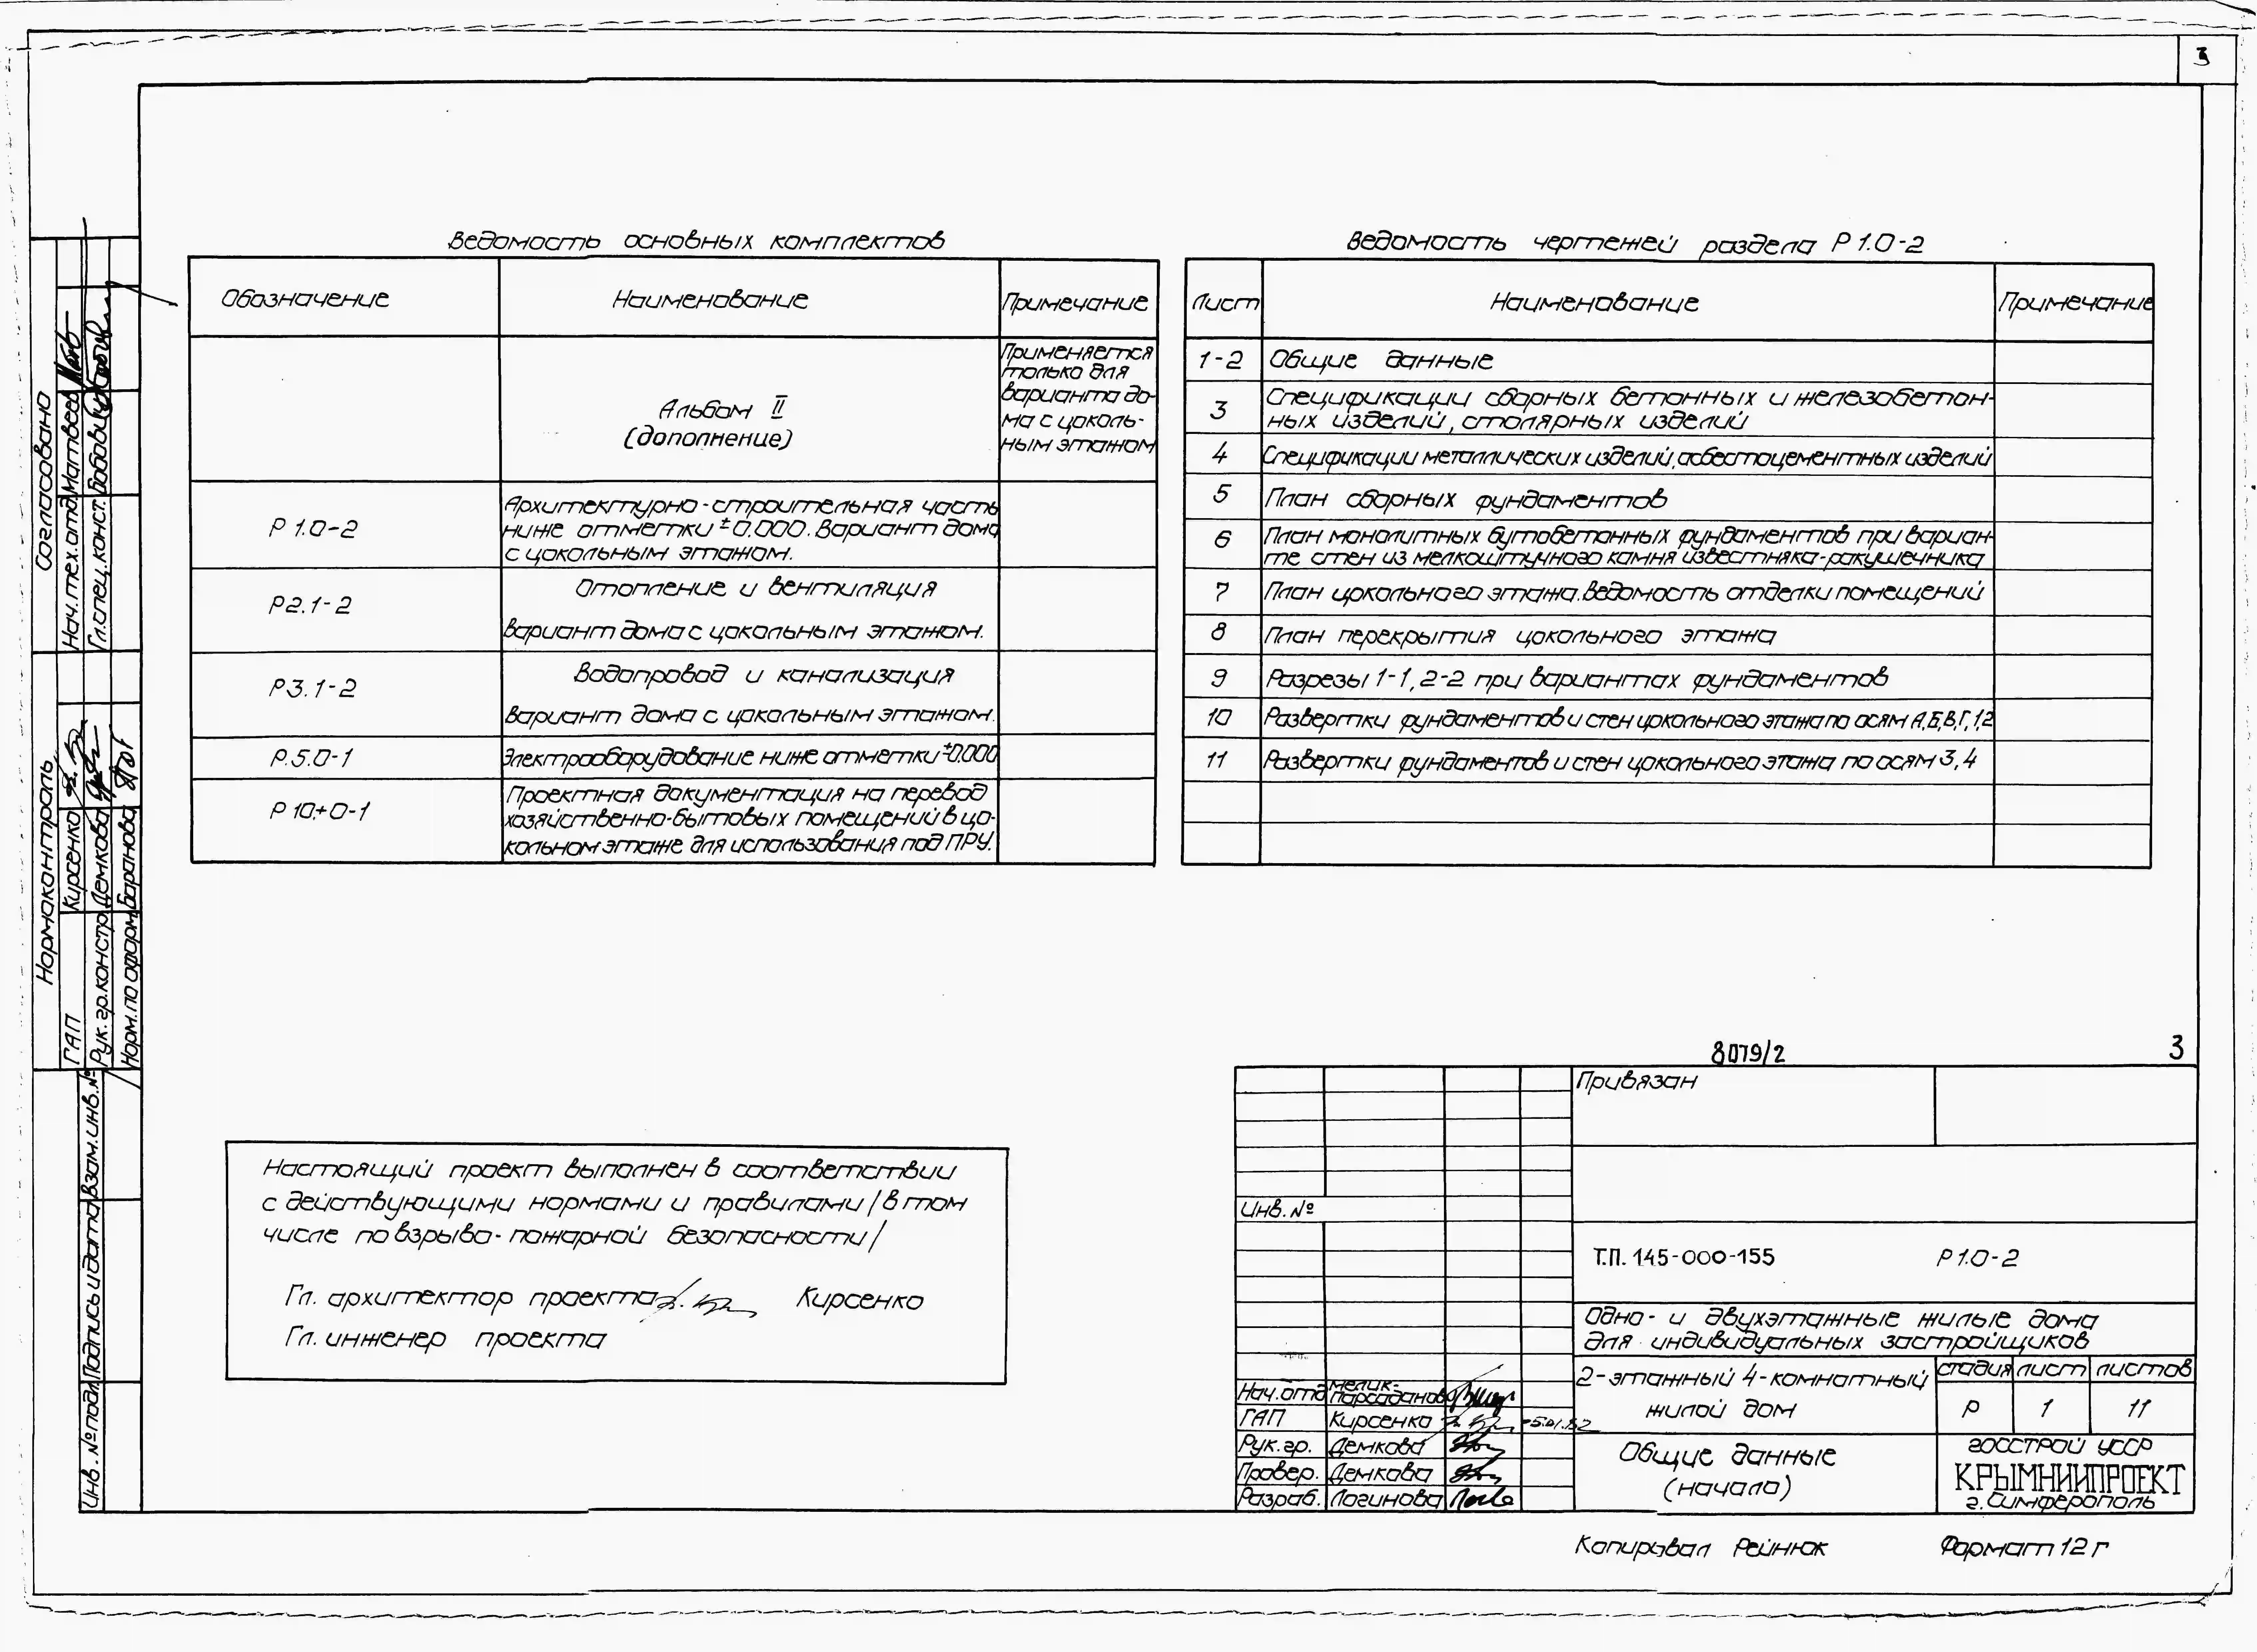 3
Ведомость основных комплектов
Обозначение
Наименование
Примечание
Альбом II
(дополнение)
Применяется
только для
варианта до-
ма с цоколь-
ным этажом
Р 1.0-2
Архитектурно-строительная часть
ниже отметки ±0.000. Вариант дома
с цокольным этажом.
Р2.1-2
Отопление и вентиляция
Вариант дома с цокольным этажом.
Р3.1-2
Водопровод и канализация
Вариант дома с цокольным этажом.
Р.5.0-1
Электрооборудование ниже отметки ±0.000
Р 10.+0-1
Проектная документация на перевод
хозяйственно-бытовых помещений в цо-
кольном этаже для использования под ПРУ.
Ведомость чертежей раздела Р 1.0-2
Лист
Наименование
Примечание
1-2 Общие данные
3 Спецификации сборных бетонных и железобетон-
ных изделий, столярных изделий
4 Спецификации металлических изделий, асбестоцементных изделий
5 План сборных фундаментов
6 План монолитных бутобетонных фундаментов при вариан-
те стен из мелкоштучного камня известняка-ракушечника
7 План цокольного этажа. Ведомость отделки помещений
8 План перекрытия цокольного этажа
9 Разрезы 1-1, 2-2 при вариантах фундаментов
10 Развертки фундаментов и стен цокольного этажа по осям А,Б,В,Г,1,2
11 Развертки фундаментов и стен цокольного этажа по осям 3,4
Согласовано
Нач.тех.отд. Матвеев
Гл.спец.конст. Бобович
Нормоконтроль
ГАП Кирсенко
Рук.гр.констр. Демкова
Норм.по оформ. Баранова
Взам.инв.№
Подпись и дата
Инв.№подл.
Настоящий проект выполнен в соответствии
с действующими нормами и правилами /в том
числе по взрыво-пожарной безопасности/
Гл. архитектор проекта Кирсенко
Гл. инженер проекта
8079/2
3
Привязан
Инв.№
Т.П. 145-000-155 Р 1.0-2
Одно- и двухэтажные жилые дома
для индивидуальных застройщиков
2-этажный 4-комнатный
жилой дом
стадия лист листов
Р 1 11
Общие данные
(начало)
ГОССТРОЙ УССР
КРЫМНИИПРОЕКТ
г. Симферополь
Нач.отд. Мелик-
Парсаданов
ГАП Кирсенко
Рук.гр. Демкова
Провер. Демкова
Разраб. Логинова
Копировал Рейнюк
Формат 12 г